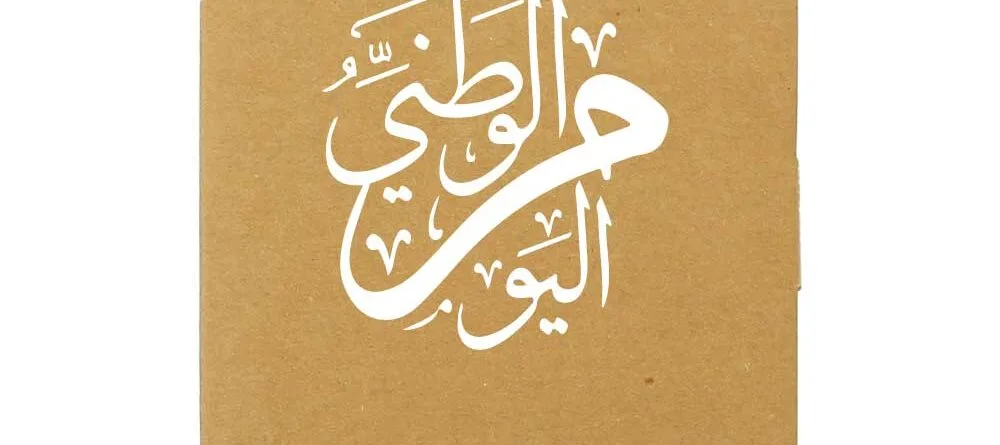 اليوم
الوطنيُّ